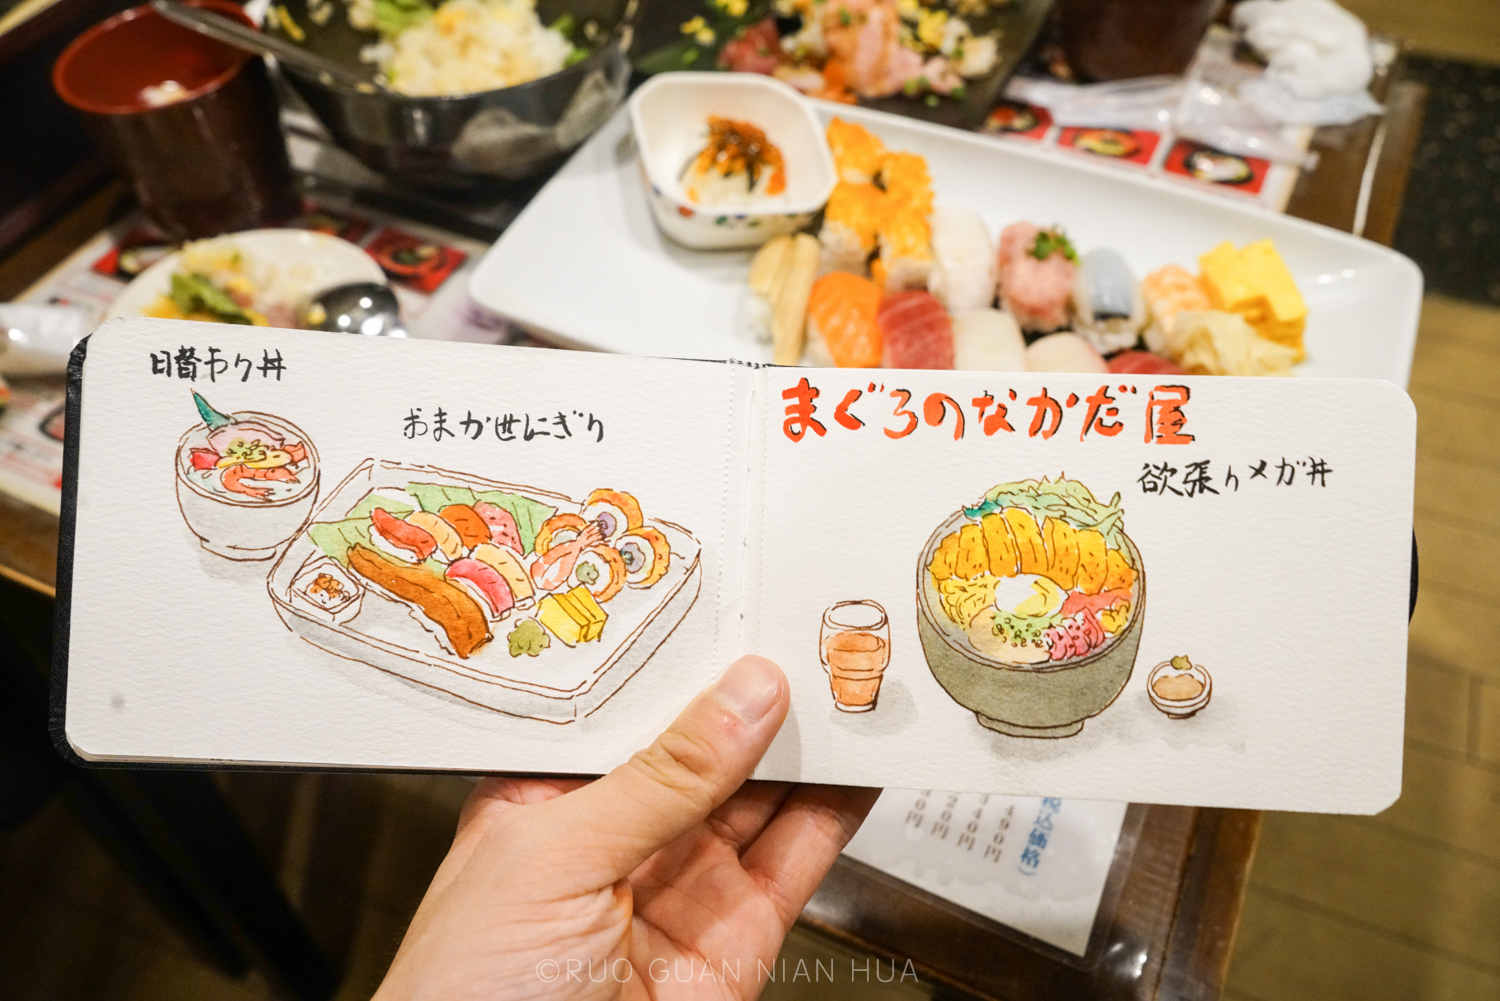 日替わり丼
おまか世にぎり
まぐろのなかだ屋
欲張りメガ丼
税込価格）
490円
©RUO GUAN NIAN HUA